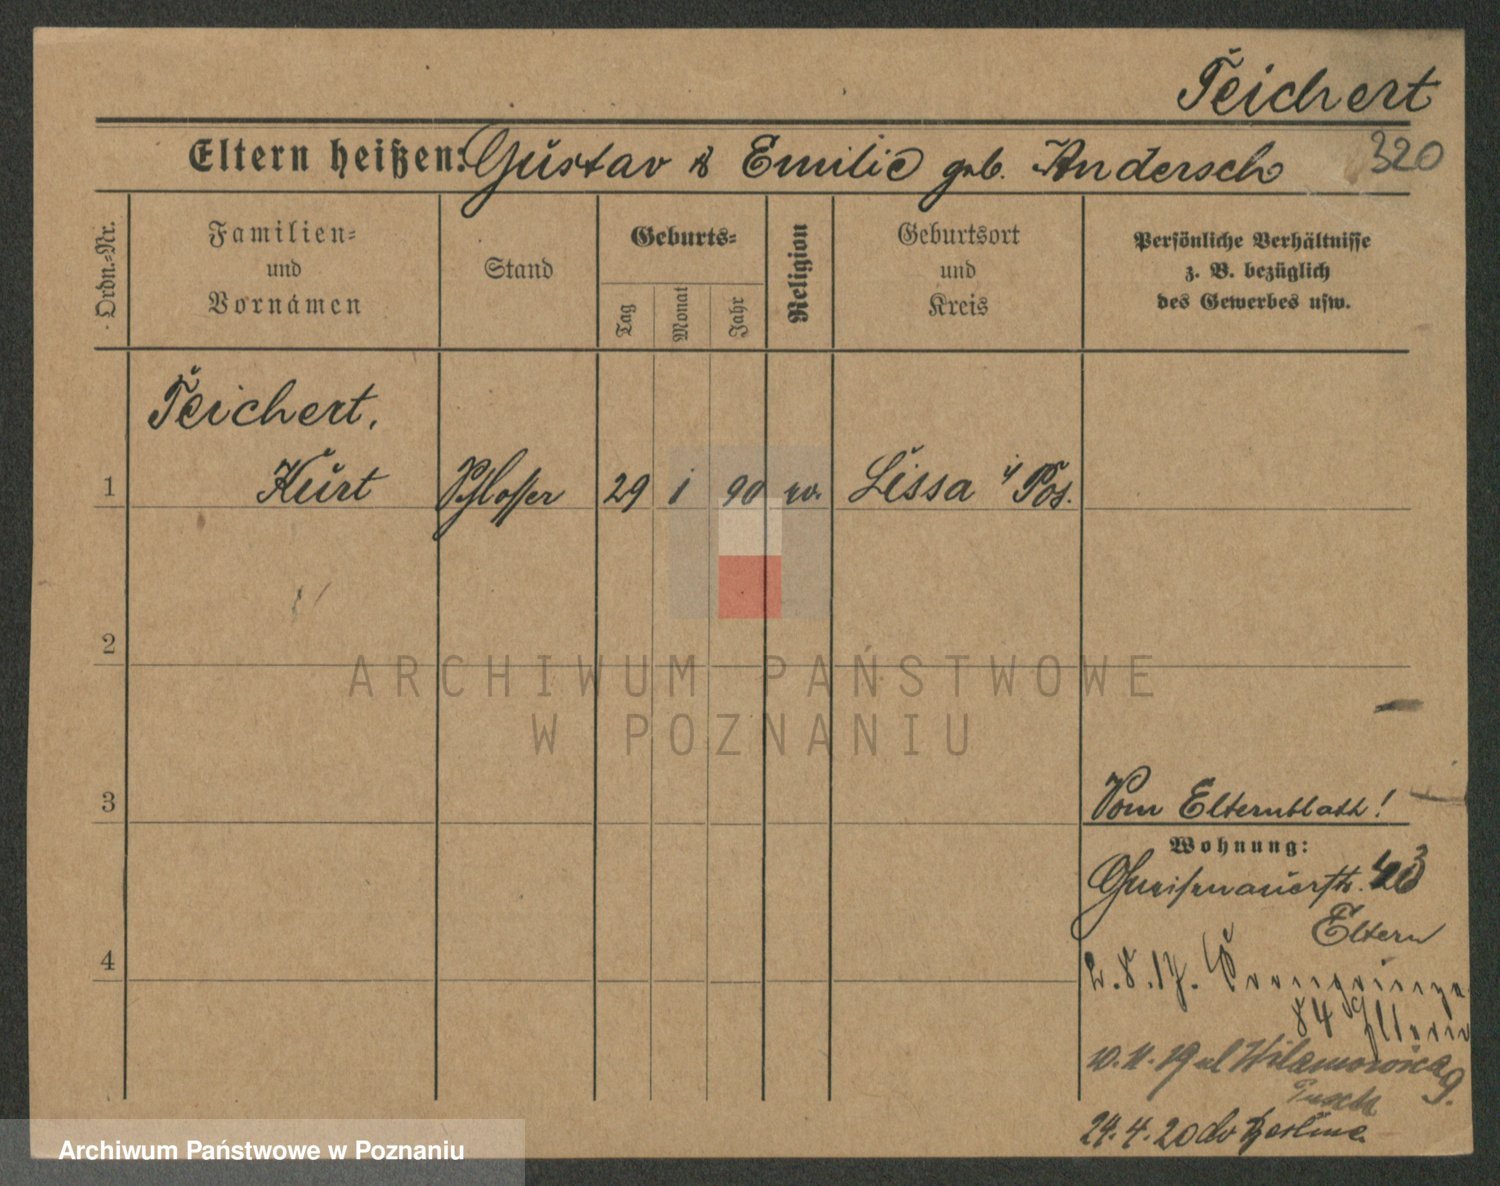 Teichert
Eltern heißen: Gustav & Emilie geb. Andersch 320
Ordn.-Nr.
Familien-
und
Vornamen
Stand
Geburts-
Tag
Monat
Jahr
Religion
Geburtsort
und
Kreis
Persönliche Verhältnisse
z. B. bezüglich
des Gewerbes usw.
Teichert,
1 Kurt Schlosser 29 1 90 ev. Lissa i/ Pos.
2
ARCHIWUM PAŃSTWOWE
W POZNANIU
3
Vom Elternblatt!
Wohnung:
Gneisenauerstr.
Eltern
4
2.8.17. Kronprinz
84 Eltern
19 ul
24.4.20 do Berlina
Archiwum Państwowe w Poznaniu